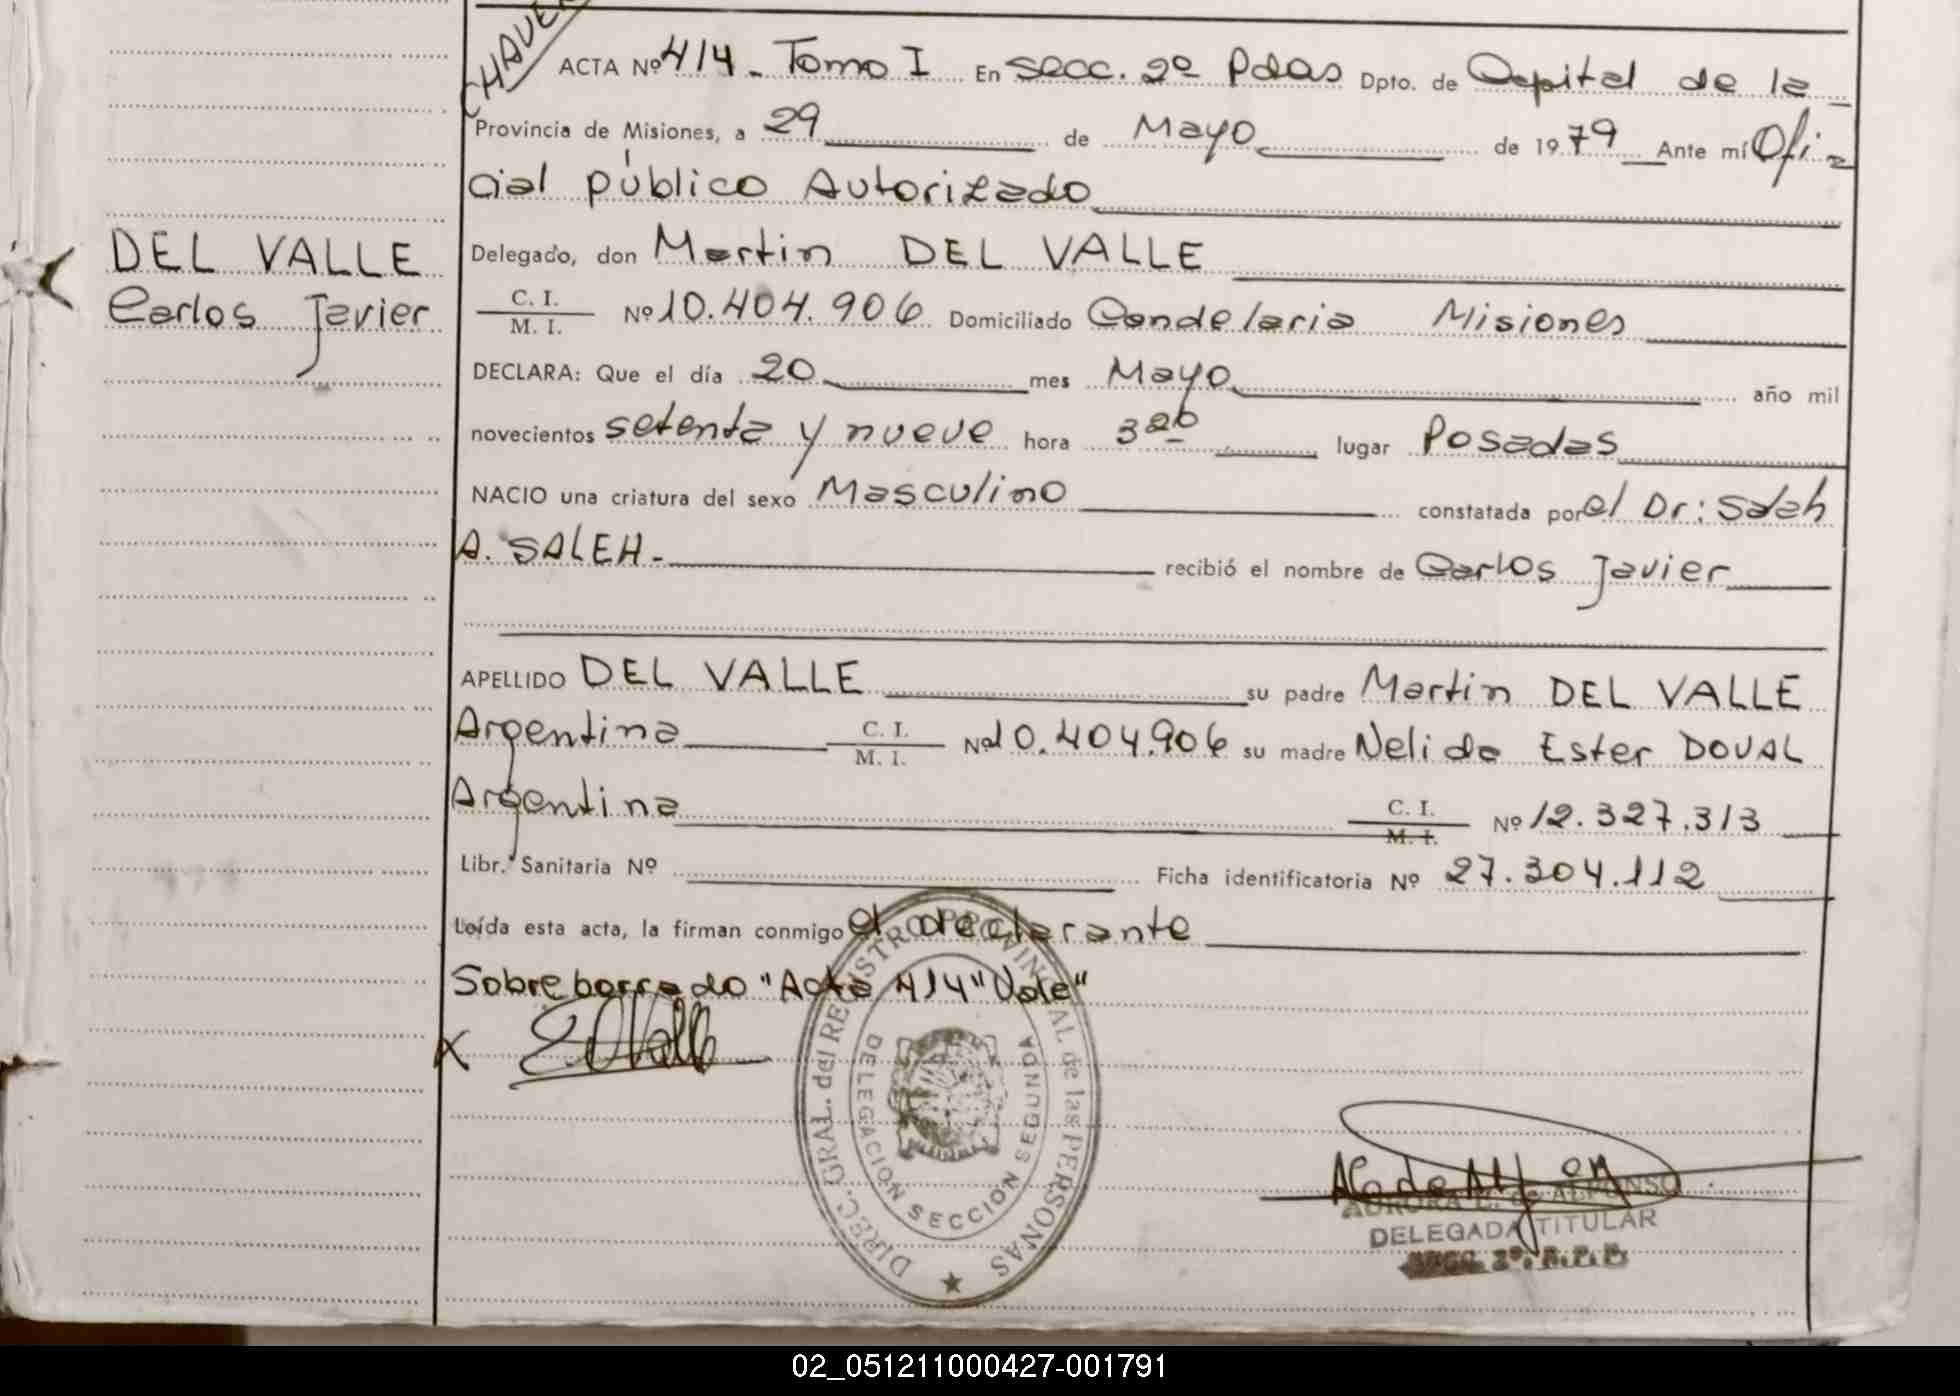 CHAVE
ACTA Nº 414 - Tomo I En secc. 2º Pdas Dpto. de Capital de la
Provincia de Misiones, a 29 de Mayo de 1979 Ante mí Ofi-
cial público Autorizado
DEL VALLE
Carlos Javier
Delegado, don Martin DEL VALLE
C. I.
M. I.
Nº 10.404.906 Domiciliado Candelaria Misiones
DECLARA: Que el día 20 mes Mayo año mil
novecientos setenta y nueve hora 3 20 lugar Posadas
NACIO una criatura del sexo Masculino constatada por el Dr: Saleh
A. SALEH.- recibió el nombre de Carlos Javier
APELLIDO DEL VALLE su padre Martin DEL VALLE
Argentina C. I.
M. I. Nº 10.404.906 su madre Nelida Ester DOVAL
Argentina C. I.
M. I. Nº 12.327.313
Libr. Sanitaria Nº Ficha identificatoria Nº 27.304.112
Leída esta acta, la firman conmigo el declarante
Sobre borrado "Acta 414 "Vale"
X
DIREC. GRAL. del REGISTRO PROVINCIAL de las PERSONAS
DELEGACION SECCION SEGUNDA
AURORA E. de ALFONSO
DELEGADA TITULAR
02_051211000427-001791